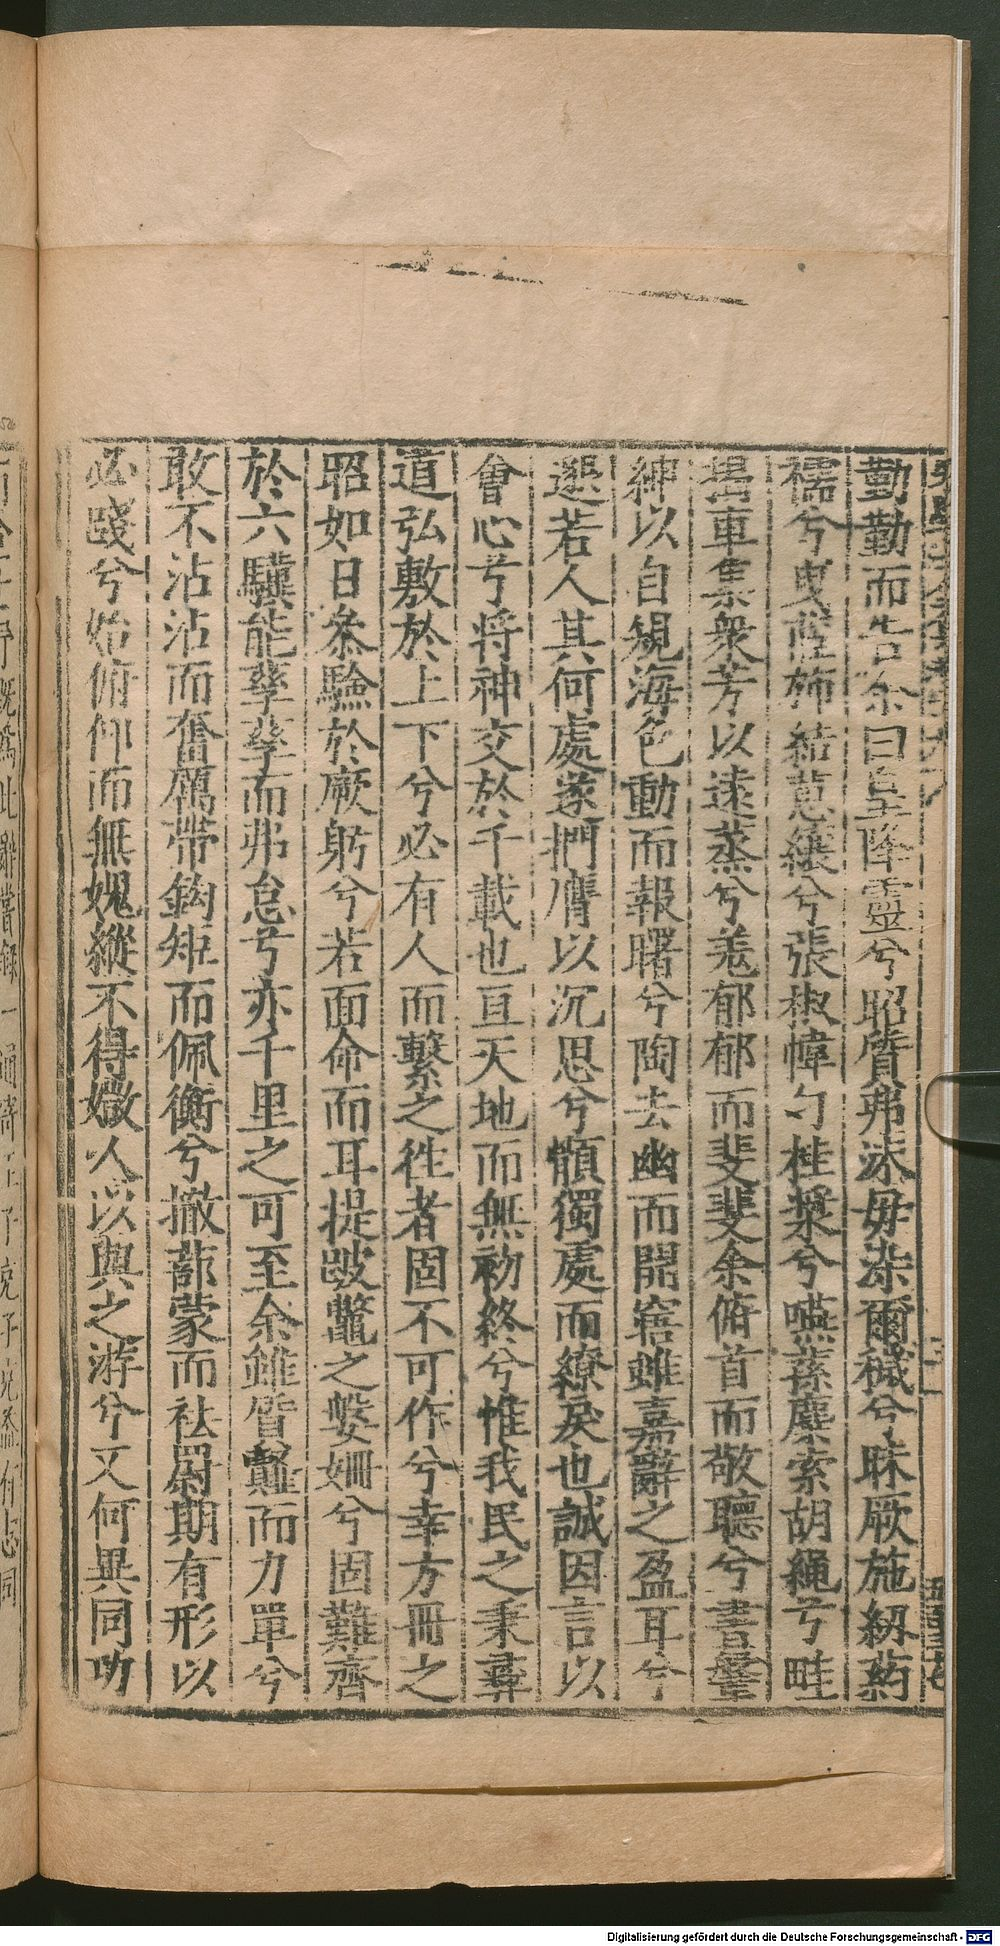 勤勤而告余曰皇降靈兮昭質弗沫毋染爾穢兮昧厥施紉葯
襦兮曳茝結蕙纕兮張椒幃勺桂漿兮嚥蕠麋索胡繩兮畦
揭車集衆芳以遠蒸兮羗郁郁而斐斐余俯首而敬聽兮書
紳以自規海色動而報曙兮陶去幽而開窹雖嘉辭之盈耳兮
選若人其何處遂捫膺以沉思兮顝獨處而繚戾也誠因言以
會心兮将神交於千載也亘天地而無初終兮惟我民之秉彛
道弘敷於上下兮必有人而繫之徃者固不可作兮幸方冊之
昭如日叅驗於厥躬兮若面命而耳提跛鼈之媻姍兮固難齊
於六驥能孳孳而弗怠兮亦千里之可至余雖昏而力單兮
敢不沾沾而奮厲帶鉤矩而佩衡兮撤蔀蒙而袪罻期有形以
必踐兮始俯仰而無媿縱不得媺人以與之游兮又何異同
旣爲此辭嘗錄一通